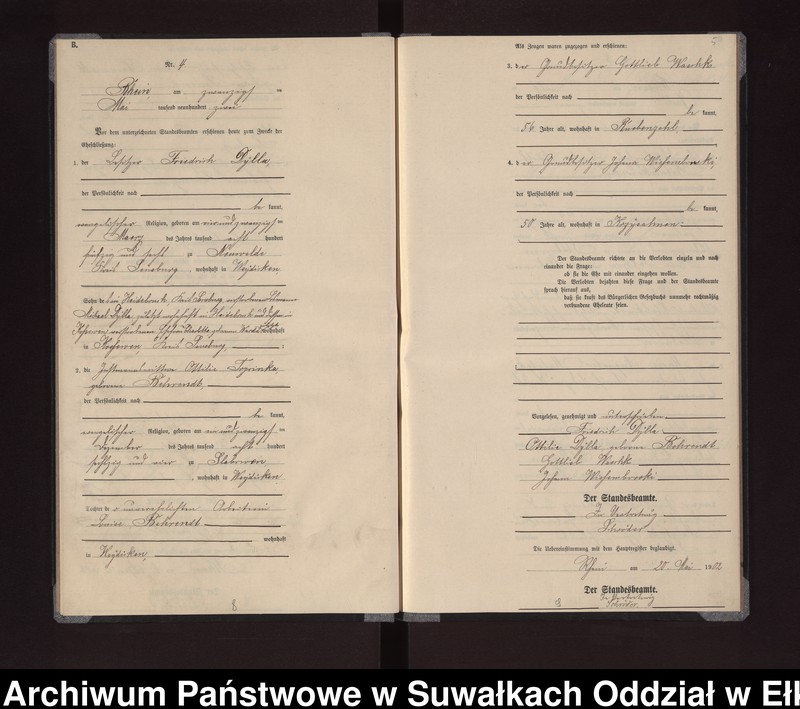 B.
Nr. 4
Rhein am zwanzigsten
Mai tausend neunhundert zwei
Vor dem unterzeichneten Standesbeamten erschienen heute zum Zwecke der
Eheschließung:
1. der Besitzer Friedrich Dzilla,
der Persönlichkeit nach
be kannt,
evangelischer Religion, geboren am vierundzwanzigsten
Maerz des Jahres tausend acht hundert
fünfzig und sechs zu Neuwelde
Kreis Sensburg, wohnhaft in Weydicken
Sohn des in Heidebruch, Kreis Sensburg, verstorbenen
Michael Dzilla, zuletzt wohnhaft in
Kossewen verstorbenen geborenen wohnhaft
in Kossewen, Kreis Sensburg, ;
2. die Ottilie Toprinka,
geborene Behrendt,
der Persönlichkeit nach
be kannt,
evangelischer Religion, geboren am einundzwanzigsten
Dezember des Jahres tausend acht hundert
sechszig und vier zu Slabowen
, wohnhaft in Weydicken
Tochter der unverehelichten Arbeiterin
Louise Behrendt
wohnhaft
in Weydicken,
8
Als Zeugen waren zugezogen und erschienen:
3. der Grundbesitzer Gottlieb
der Persönlichkeit nach
be kannt,
56 Jahre alt, wohnhaft in
4. der Grundbesitzer Johann
der Persönlichkeit nach
be kannt,
50 Jahre alt, wohnhaft in
Der Standesbeamte richtete an die Verlobten einzeln und nach
einander die Frage:
ob sie die Ehe mit einander eingehen wollen.
Die Verlobten bejahten diese Frage und der Standesbeamte
sprach hierauf aus,
daß sie kraft des Bürgerlichen Gesetzbuchs nunmehr rechtmäßig
verbundene Eheleute seien.
Vorgelesen, genehmigt und unterschrieben
Friedrich Dzilla
Ottilie Dzilla geborene Behrendt
Gottlieb
Johann
Der Standesbeamte.
In Vertretung
Schröder
Die Uebereinstimmung mit dem Hauptregister beglaubigt.
Rhein am 20. Mai 1902
Der Standesbeamte.
In Vertretung
Schröder.
Archiwum Państwowe w Suwałkach Oddział w Ełk